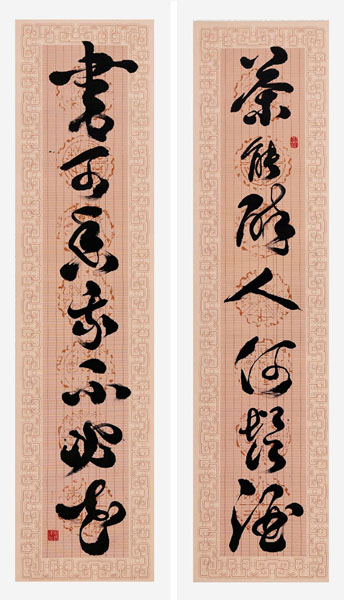 茶能醉人何須酒
書可香我不必花